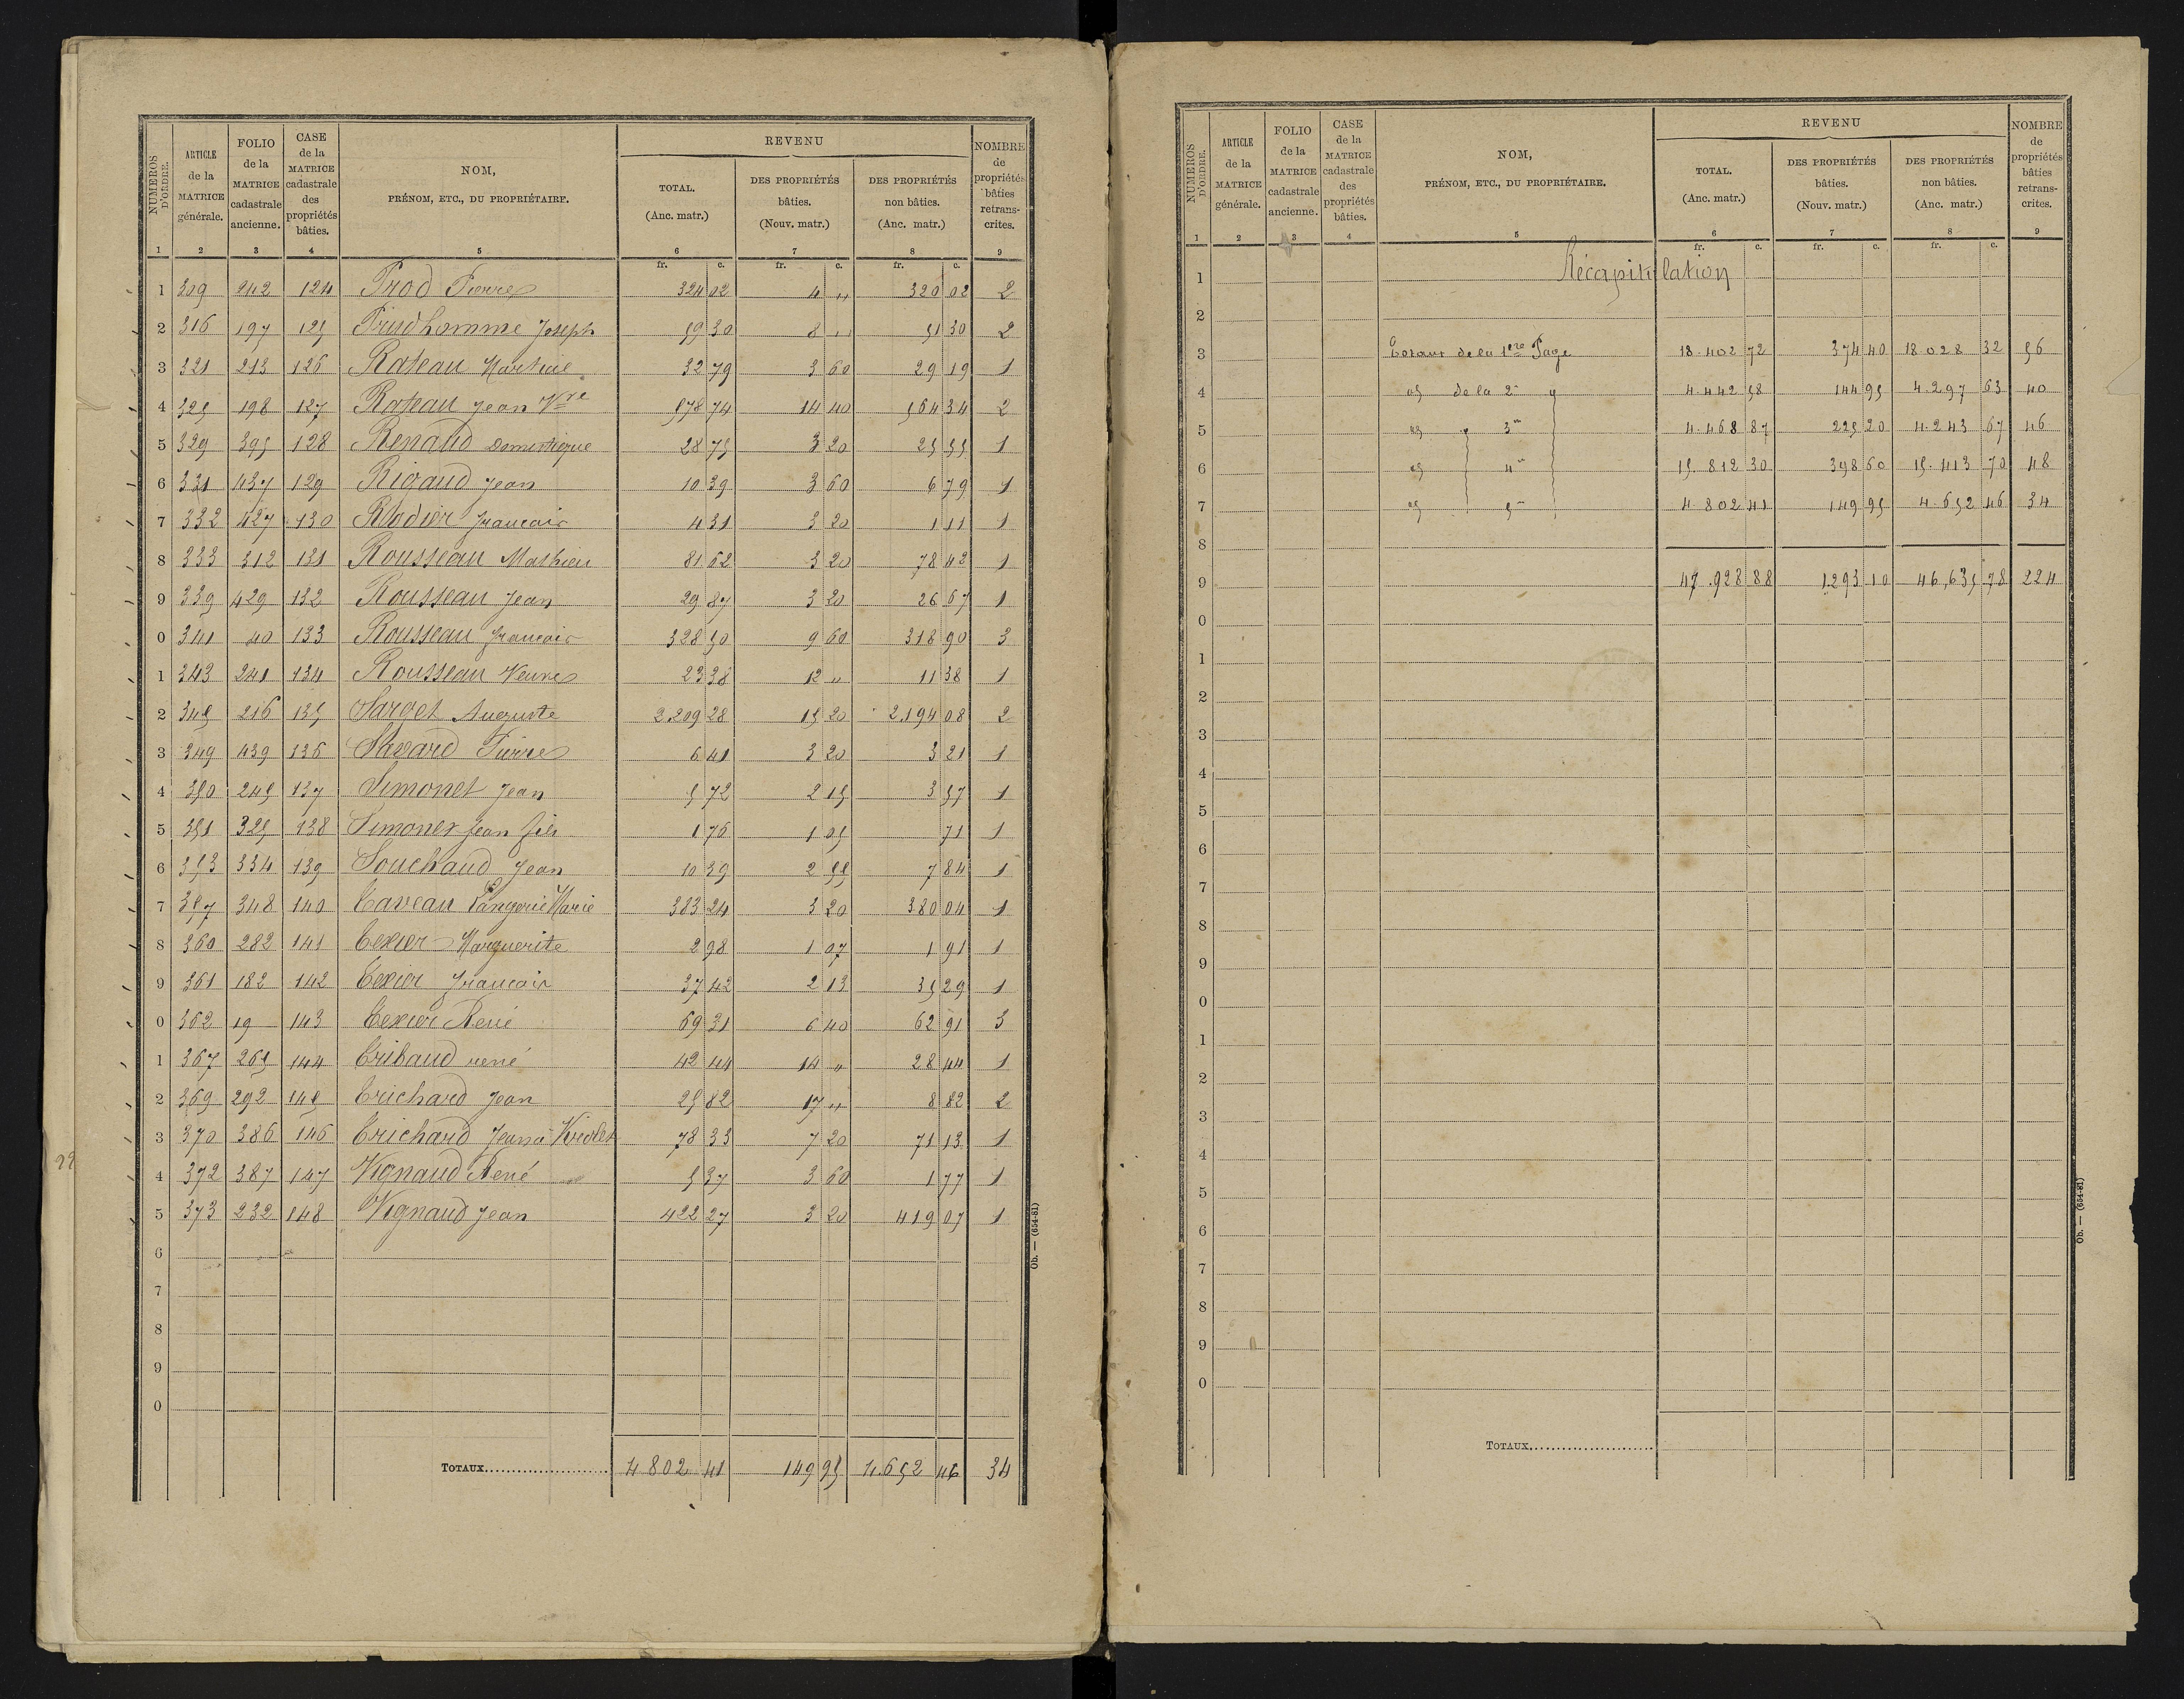 NUMÉROS D'ORDRE.
ARTICLE de la MATRICE générale.
FOLIO de la MATRICE cadastrale ancienne.
CASE de la MATRICE cadastrale des propriétés bâties.
NOM, PRÉNOM, ETC., DU PROPRIÉTAIRE.
REVENU
TOTAL. (Anc. matr.)
DES PROPRIÉTÉS bâties. (Nouv. matr.)
DES PROPRIÉTÉS non bâties. (Anc. matr.)
NOMBRE de propriétés bâties retranscrites.
1 2 3 4 5 6 7 8 9
fr. c. fr. c. fr. c.
1 309 242 124 Prod Pierre 324 02 4 " 320 02 2
2 316 197 125 Prudhomme Joseph 59 30 8 " 51 30 2
3 321 213 126 Rateau Martial 32 79 3 60 29 19 1
4 325 198 127 Rateau Jean Vve 578 74 14 40 564 34 2
5 329 395 128 Renaud Dominique 28 75 3 20 25 55 1
6 331 437 129 Rigaud Jean 10 39 3 60 6 79 1
7 332 427 130 Rodier francois 4 31 3 20 1 11 1
8 333 312 131 Rousseau Mathieu 81 62 3 20 78 42 1
9 339 429 132 Rousseau Jean 29 87 3 20 26 67 1
0 341 40 133 Rousseau francois 328 50 9 60 318 90 3
1 343 241 134 Rousseau Veuve 23 38 12 " 11 38 1
2 345 216 135 Sarget Auguste 2.209 28 15 20 2.194 08 2
3 349 439 136 Savard Pierre 6 41 3 20 3 21 1
4 350 245 137 Simonet Jean 5 72 2 15 3 57 1
5 351 325 138 Simonet Jean fils 1 76 1 05 71 1
6 353 334 139 Souchaud Jean 10 39 2 55 7 84 1
7 357 348 140 Taveau Marie 383 24 3 20 380 04 1
8 360 282 141 Texier Marguerite 2 98 1 07 1 91 1
9 361 182 142 Texier francois 37 42 2 13 35 29 1
0 362 19 143 Texier René 69 31 6 40 62 91 3
1 367 265 144 Tribaud rené 42 44 14 " 28 44 1
2 369 292 145 Trichard Jean 25 82 17 " 8 82 2
3 370 386 146 Trichard Jean à 78 33 7 20 71 13 1
4 372 387 147 Vignaud René 5 37 3 60 1 77 1
5 373 232 148 Vignaud Jean 422 27 3 20 419 07 1
6
7
8
9
0
TOTAUX 4 802 41 149 95 4.652 46 34
Ob. — (654-81)
29
NUMÉROS D'ORDRE.
ARTICLE de la MATRICE générale.
FOLIO de la MATRICE cadastrale ancienne.
CASE de la MATRICE cadastrale des propriétés bâties.
NOM, PRÉNOM, ETC., DU PROPRIÉTAIRE.
REVENU
TOTAL. (Anc. matr.)
DES PROPRIÉTÉS bâties. (Nouv. matr.)
DES PROPRIÉTÉS non bâties. (Anc. matr.)
NOMBRE de propriétés bâties retranscrites.
1 2 3 4 5 6 7 8 9
fr. c. fr. c. fr. c.
1 Récapitulation
2
3 Totaux de la 1ere Page 18.402 72 374 40 18 028 32 56
4 de la 2e 4.442 58 144 95 4.297 63 40
5 3e 4.468 87 225 20 4.243 67 46
6 4e 15.812 30 398 60 15.413 70 48
7 5e 4 802 41 149 95 4.652 46 34
8
9 47.928 88 1.293 10 46,635 78 224
0
1
2
3
4
5
6
7
8
9
0
1
2
3
4
5
6
7
8
9
0
TOTAUX
Ob. — (654-81)